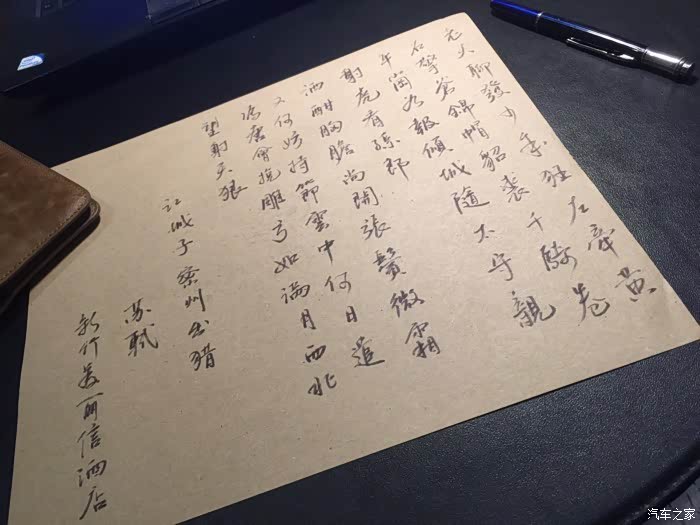 老夫聊發少年狂左牽黃
右擎蒼錦帽貂裘千騎卷
平崗为報傾城隨太守親
射虎看孫郎
酒酣胸膽尚開張鬢微霜
又何妨持節雲中何日遣
馮唐會挽雕弓如滿月西北
望射天狼
江城子密州出猎
苏軾
新竹美丽信酒店
汽车之家